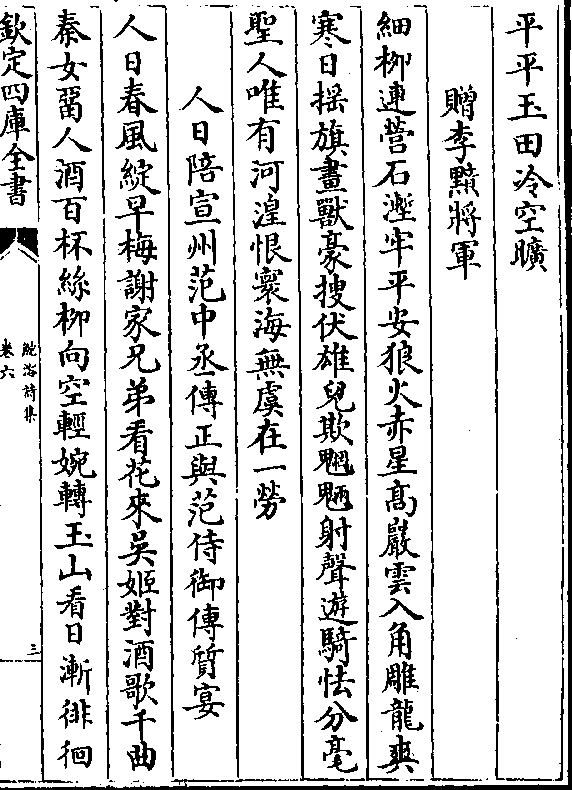 平平玉田冷空曠
贈李黟將軍
細柳連營石壍牢平安狼火赤星高巖雲入角雕龍爽
寒日揺旗畫獸豪搜伏雄兒欺魍魎射聲遊騎怯分毫
聖人唯有河湟恨寰海無虞在一勞
人日陪宣州范中丞傳正與范侍御傳質宴
人日春風綻早梅謝家兄弟看花來吳姬對酒歌千曲
秦女留人酒百杯絲柳向空輕婉轉玉山看日漸徘徊
欽定四庫全書
鮑溶詩集
卷六
三